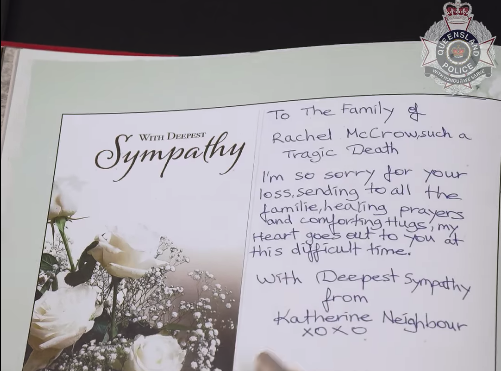 QUEENSLAND
POLICE
WITH DEEPEST
Sympathy
To The Family of
Rachel McCrow, such a
Tragic Death
I'm so sorry for your
loss, sending to all the
familie, healing prayers
and comforting Hugs, my
Heart goes out to you at
this difficult time.
With Deepest Sympathy
from
Katherine Neighbour
xoxo